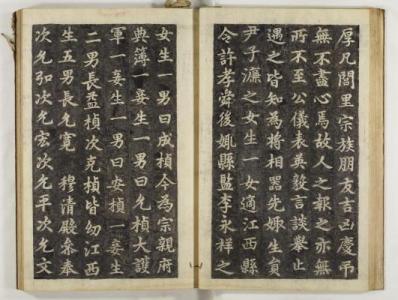 厚凡閭里宗族朋友吉凶慶弔
無不盡心焉故人之報之亦無
所不至公儀表英毅言談擧止
遇之皆知為將相器先娶生員
尹子濂之女生一女適江西縣
令許孝舜後娰縣監李永祥之
女生一男曰成楨今為宗親府
典簿一妾生一男曰允楨大護
軍一妾生一男曰安楨一妾生
二男長益楨次克楨皆幼江西
生五男長允寬 穆清殿參奉
次允弘次允宏次允平次允文